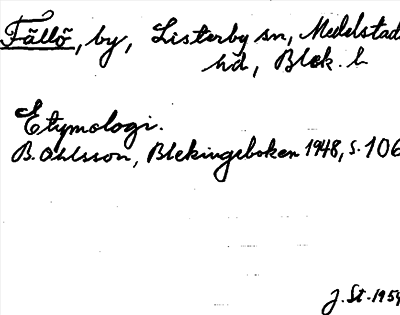 Fällö, by, Listerby sn, Medelstad
hd, Blek. l
Etymologi.
B. Ohlsson, Blekingeboken 1948, s. 106
J. St. 1959